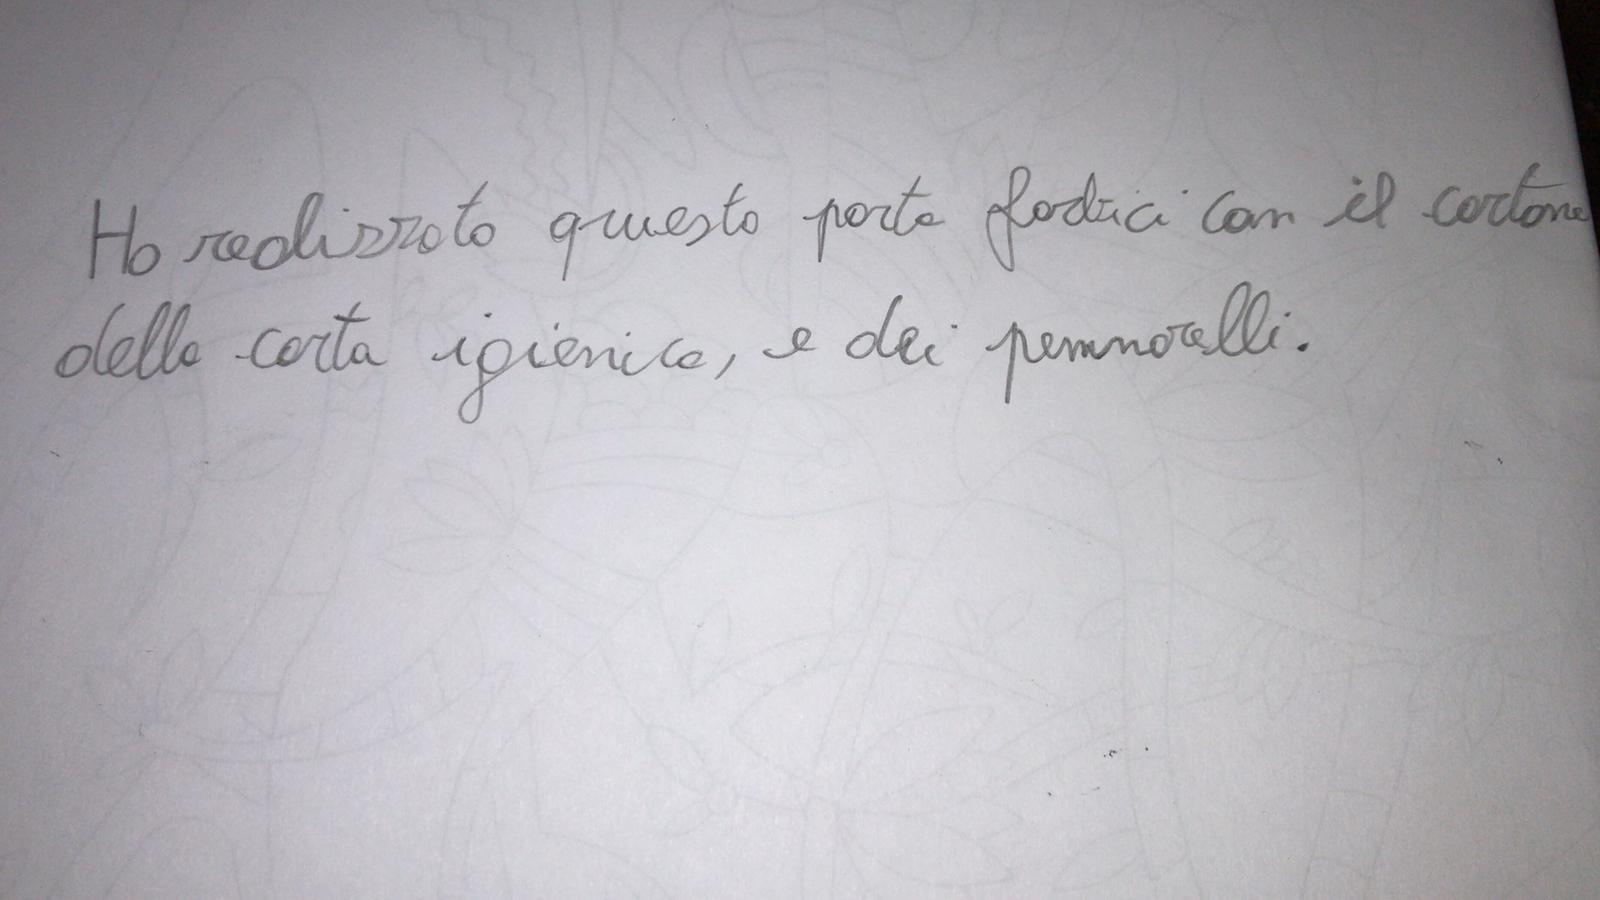 Ho realizzato questo porta forbici con il cartone
della carta igienica, e dei pennarelli.